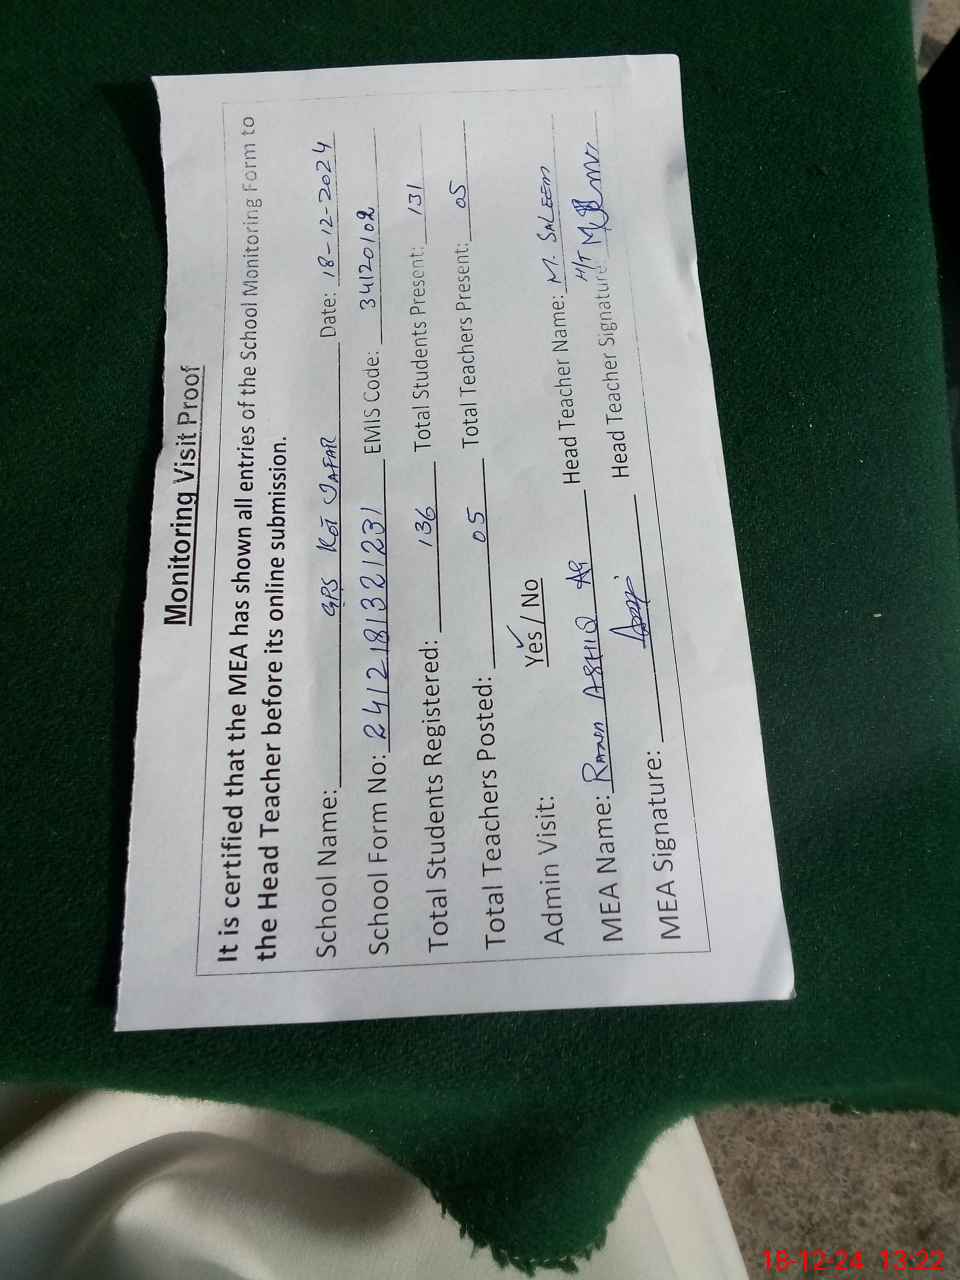 Monitoring Visit Proof
It is certified that the MEA has shown all entries of the School Monitoring Form to
the Head Teacher before its online submission.
School Name: GPS Kot JAFAR Date: 18-12-2024
School Form No: 2412181321231 EMIS Code: 34120102
Total Students Registered: 136 Total Students Present: 131
Total Teachers Posted: 05 Total Teachers Present: 05
Admin Visit: Yes / No
MEA Name: RANA ASHIQ Ali Head Teacher Name: M. SALEEM
MEA Signature: Head Teacher Signature: H/T
18-12-24 13:22